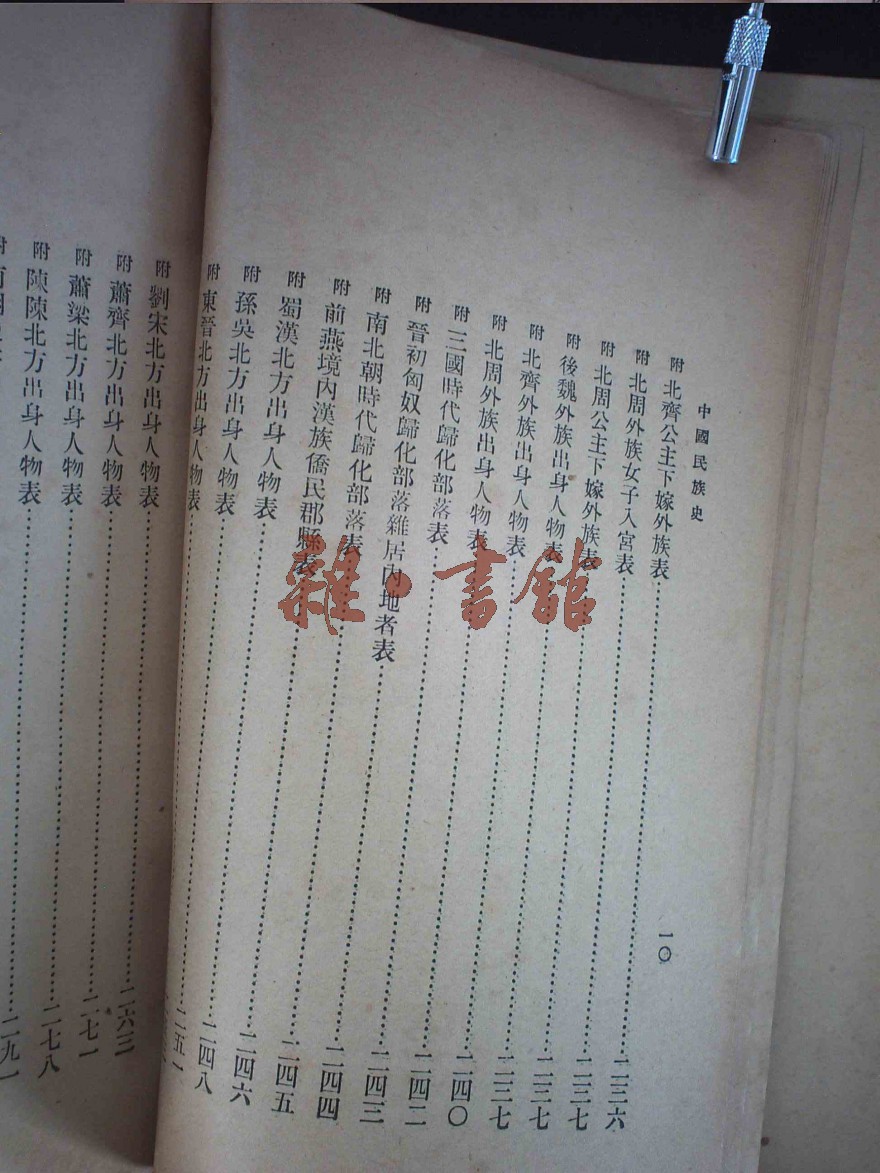 中國民族史 一〇
附 北齊公主下嫁外族表……二三六
附 北周外族女子入宮表……二三七
附 北周公主下嫁外族表……二三七
附 後魏外族出身人物表……二三七
附 北齊外族出身人物表……二四〇
附 北周外族出身人物表……二四二
附 三國時代歸化部落表……二四三
附 晉初匈奴歸化部落雜居內地者表……二四四
附 南北朝時代歸化部落表……二四五
附 前燕境內漢族僑民郡縣表……二四六
附 蜀漢北方出身人物表……二四八
附 孫吳北方出身人物表……二五一
附 東晉北方出身人物表……
附 劉宋北方出身人物表……二六三
附 蕭齊北方出身人物表……二七一
附 蕭梁北方出身人物表……二七八
附 陳陳北方出身人物表……二九一
附
雜·書館